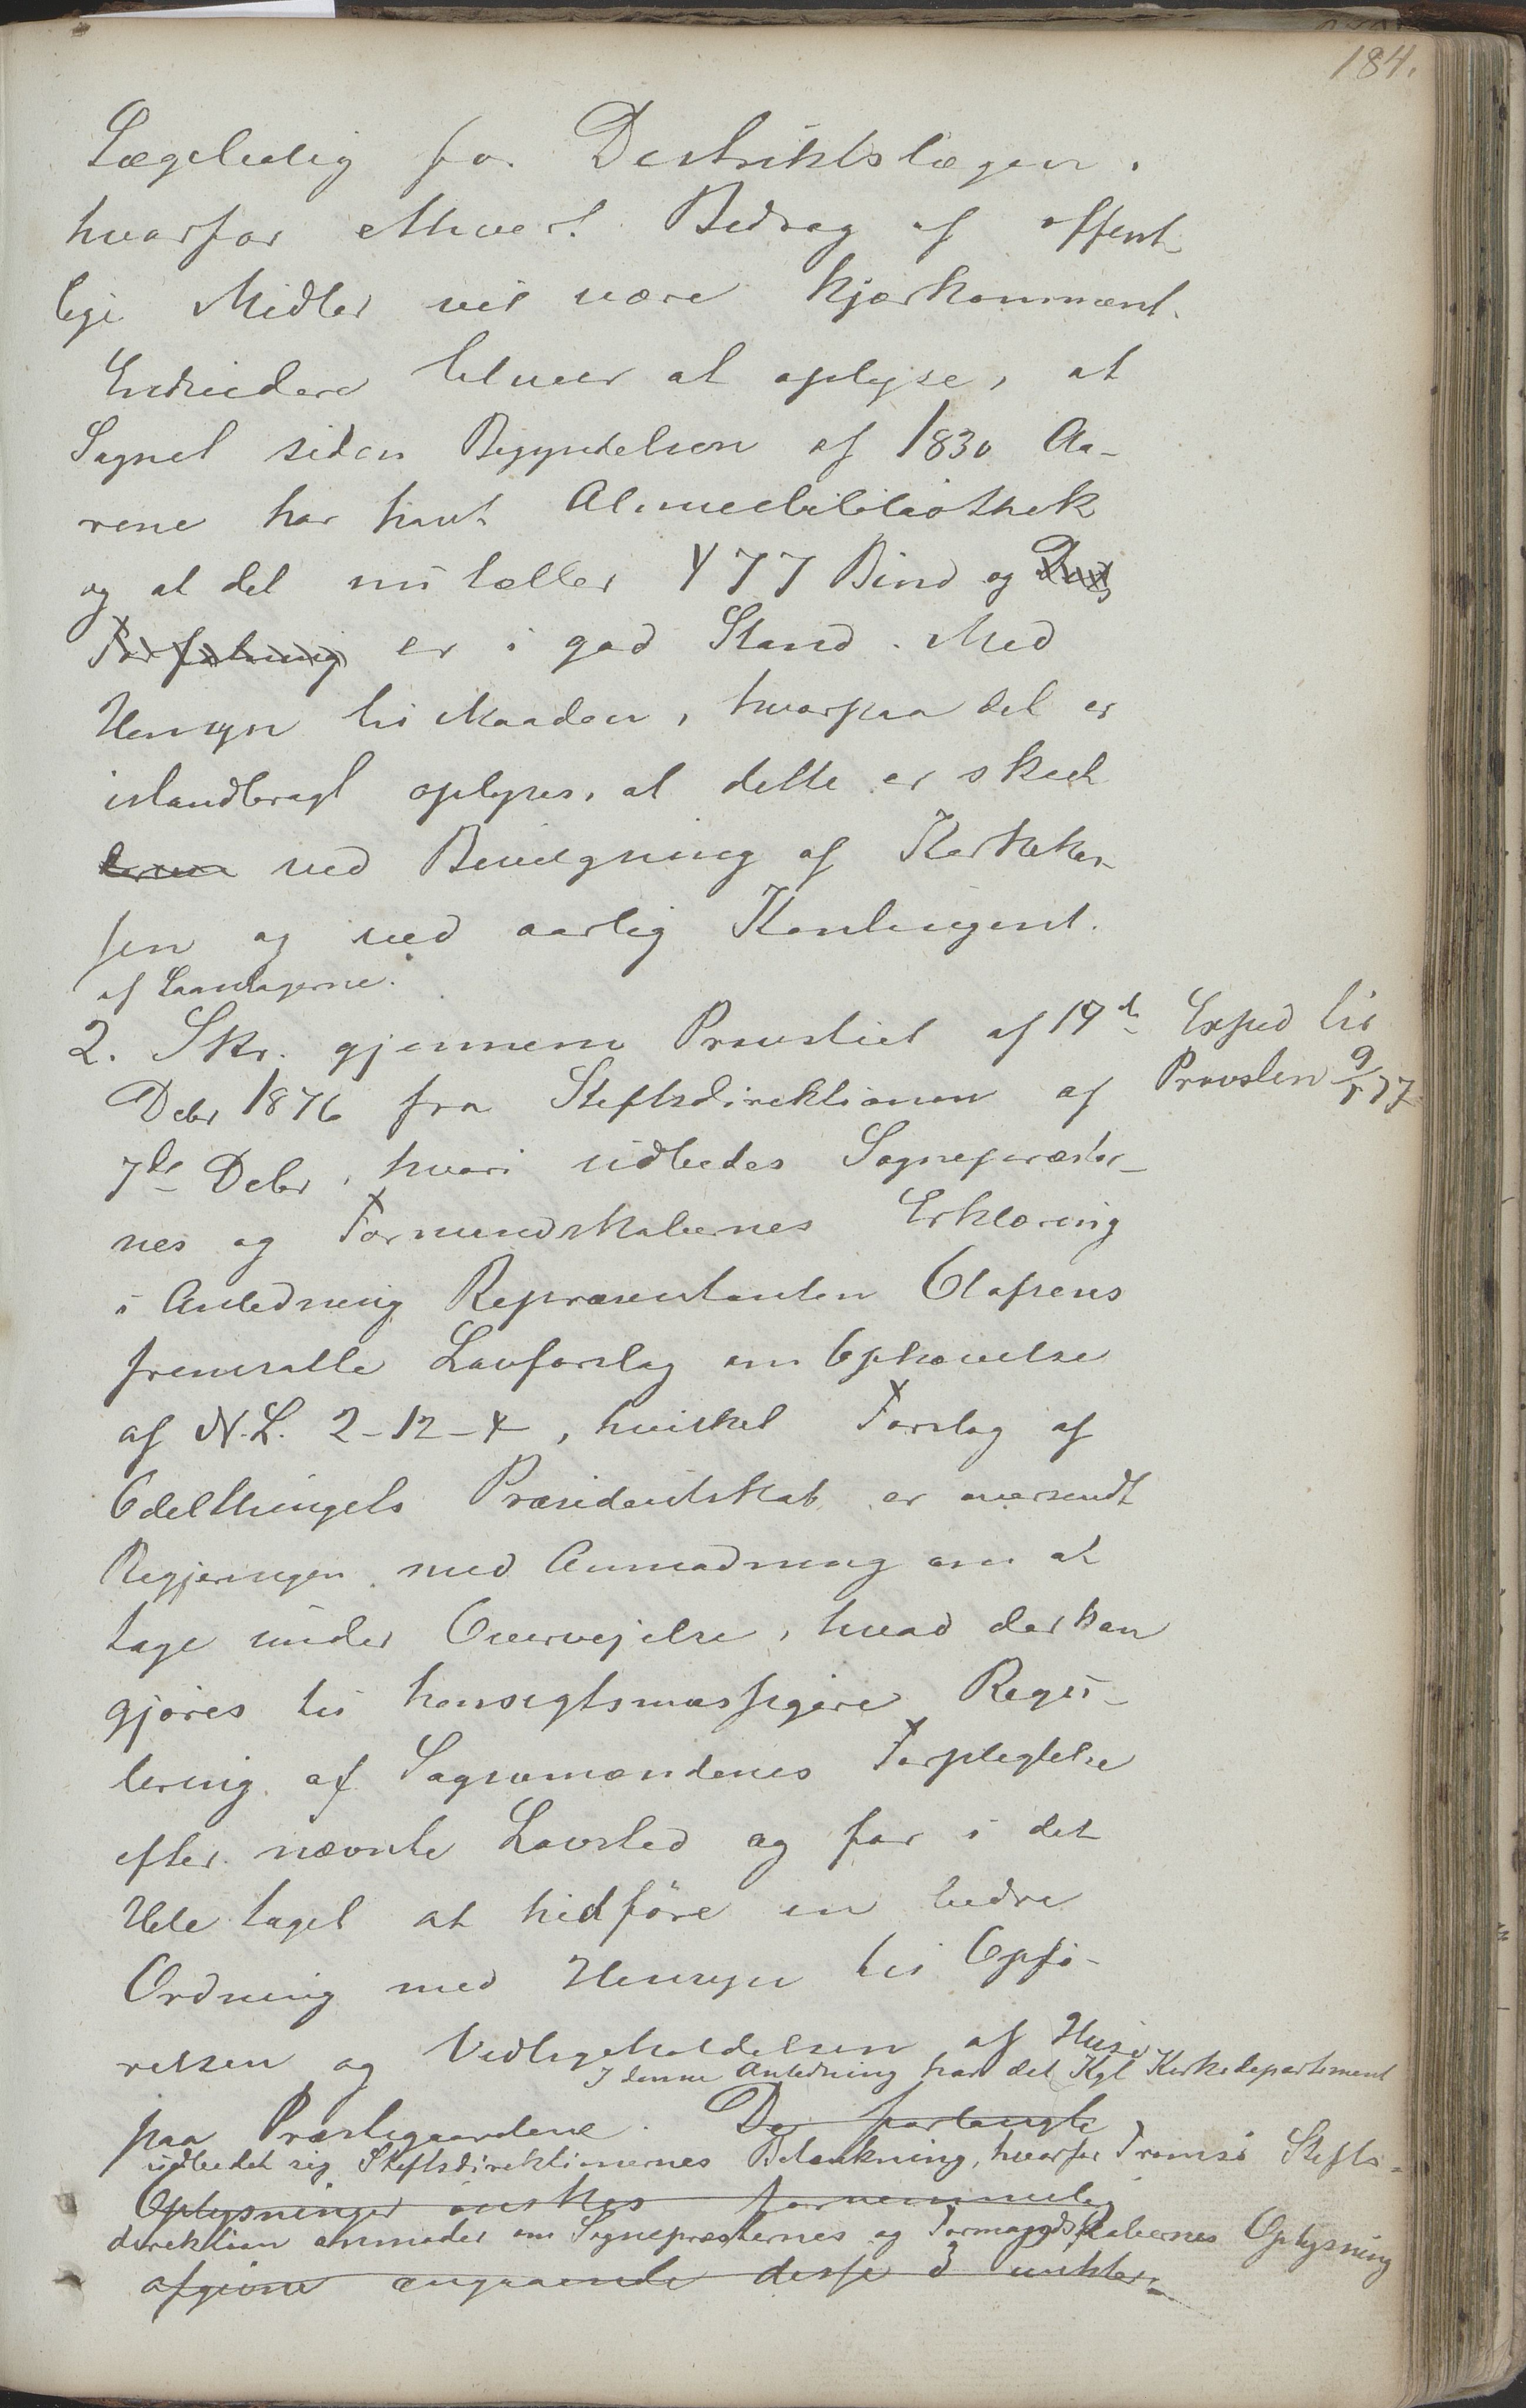 184.
Lægebolig for Destriktslægen,
hvorfor ethvert Bidrag af offent-
lige Midler vil være kjærkomment.
Endvidere bliver at oplyse, at
Sognet siden Begyndelsen af 1830 Aa-
rene har havt Almuebibliothek
og at det nu tæller 477 Bind og
Forfatning er i god Stand. Med
Hensyn til Maaden, hvorpaa det er
istandbragt oplyses, at dette er skeet
ved Bevilgning af Kirkekas
sen og ved aarlig Kontingent.
af Laantagerne.
2. Skr. gjennem Provstiet af 19de
Debr 1876 fra Stiftsdirektionen af
7de Debr, hvori udbedes Sognepræster-
nes og Formandskabernes Erklæring
i Anledning Repræsentanten Olafsens
fremsatte Lovforslag om Ophævelse
af N.L. 2-12-4, hvilket Forslag af
Odelthingets Præsidentskab er oversendt
Regjeringen med Anmodning om at
tage under Overvejelse, hvad der kan
gjøres til hensigtsmæssigere Regu-
lering af Sognemændenes Forpligtelse
efter nævnte Lovsted og for i det
Hele taget at hidføre en bedre
Ordning med Hensyn til Opfø-
relsen og Vedligeholdelsen af Huse
paa Præstegaardene. De forlangte
I denne Anledning har det Kgl Kirkedepartement
udbedet sig Stiftsdirektionernes Betænkning, hvorfor Tromsø Stifts-
Oplysninger ønskes fornemmelig
direktion anmoder om Sognepræsternes og Formandskabernes Oplysning
afgivne angaaende disse 3
Exped til
Provsten 9/1 77